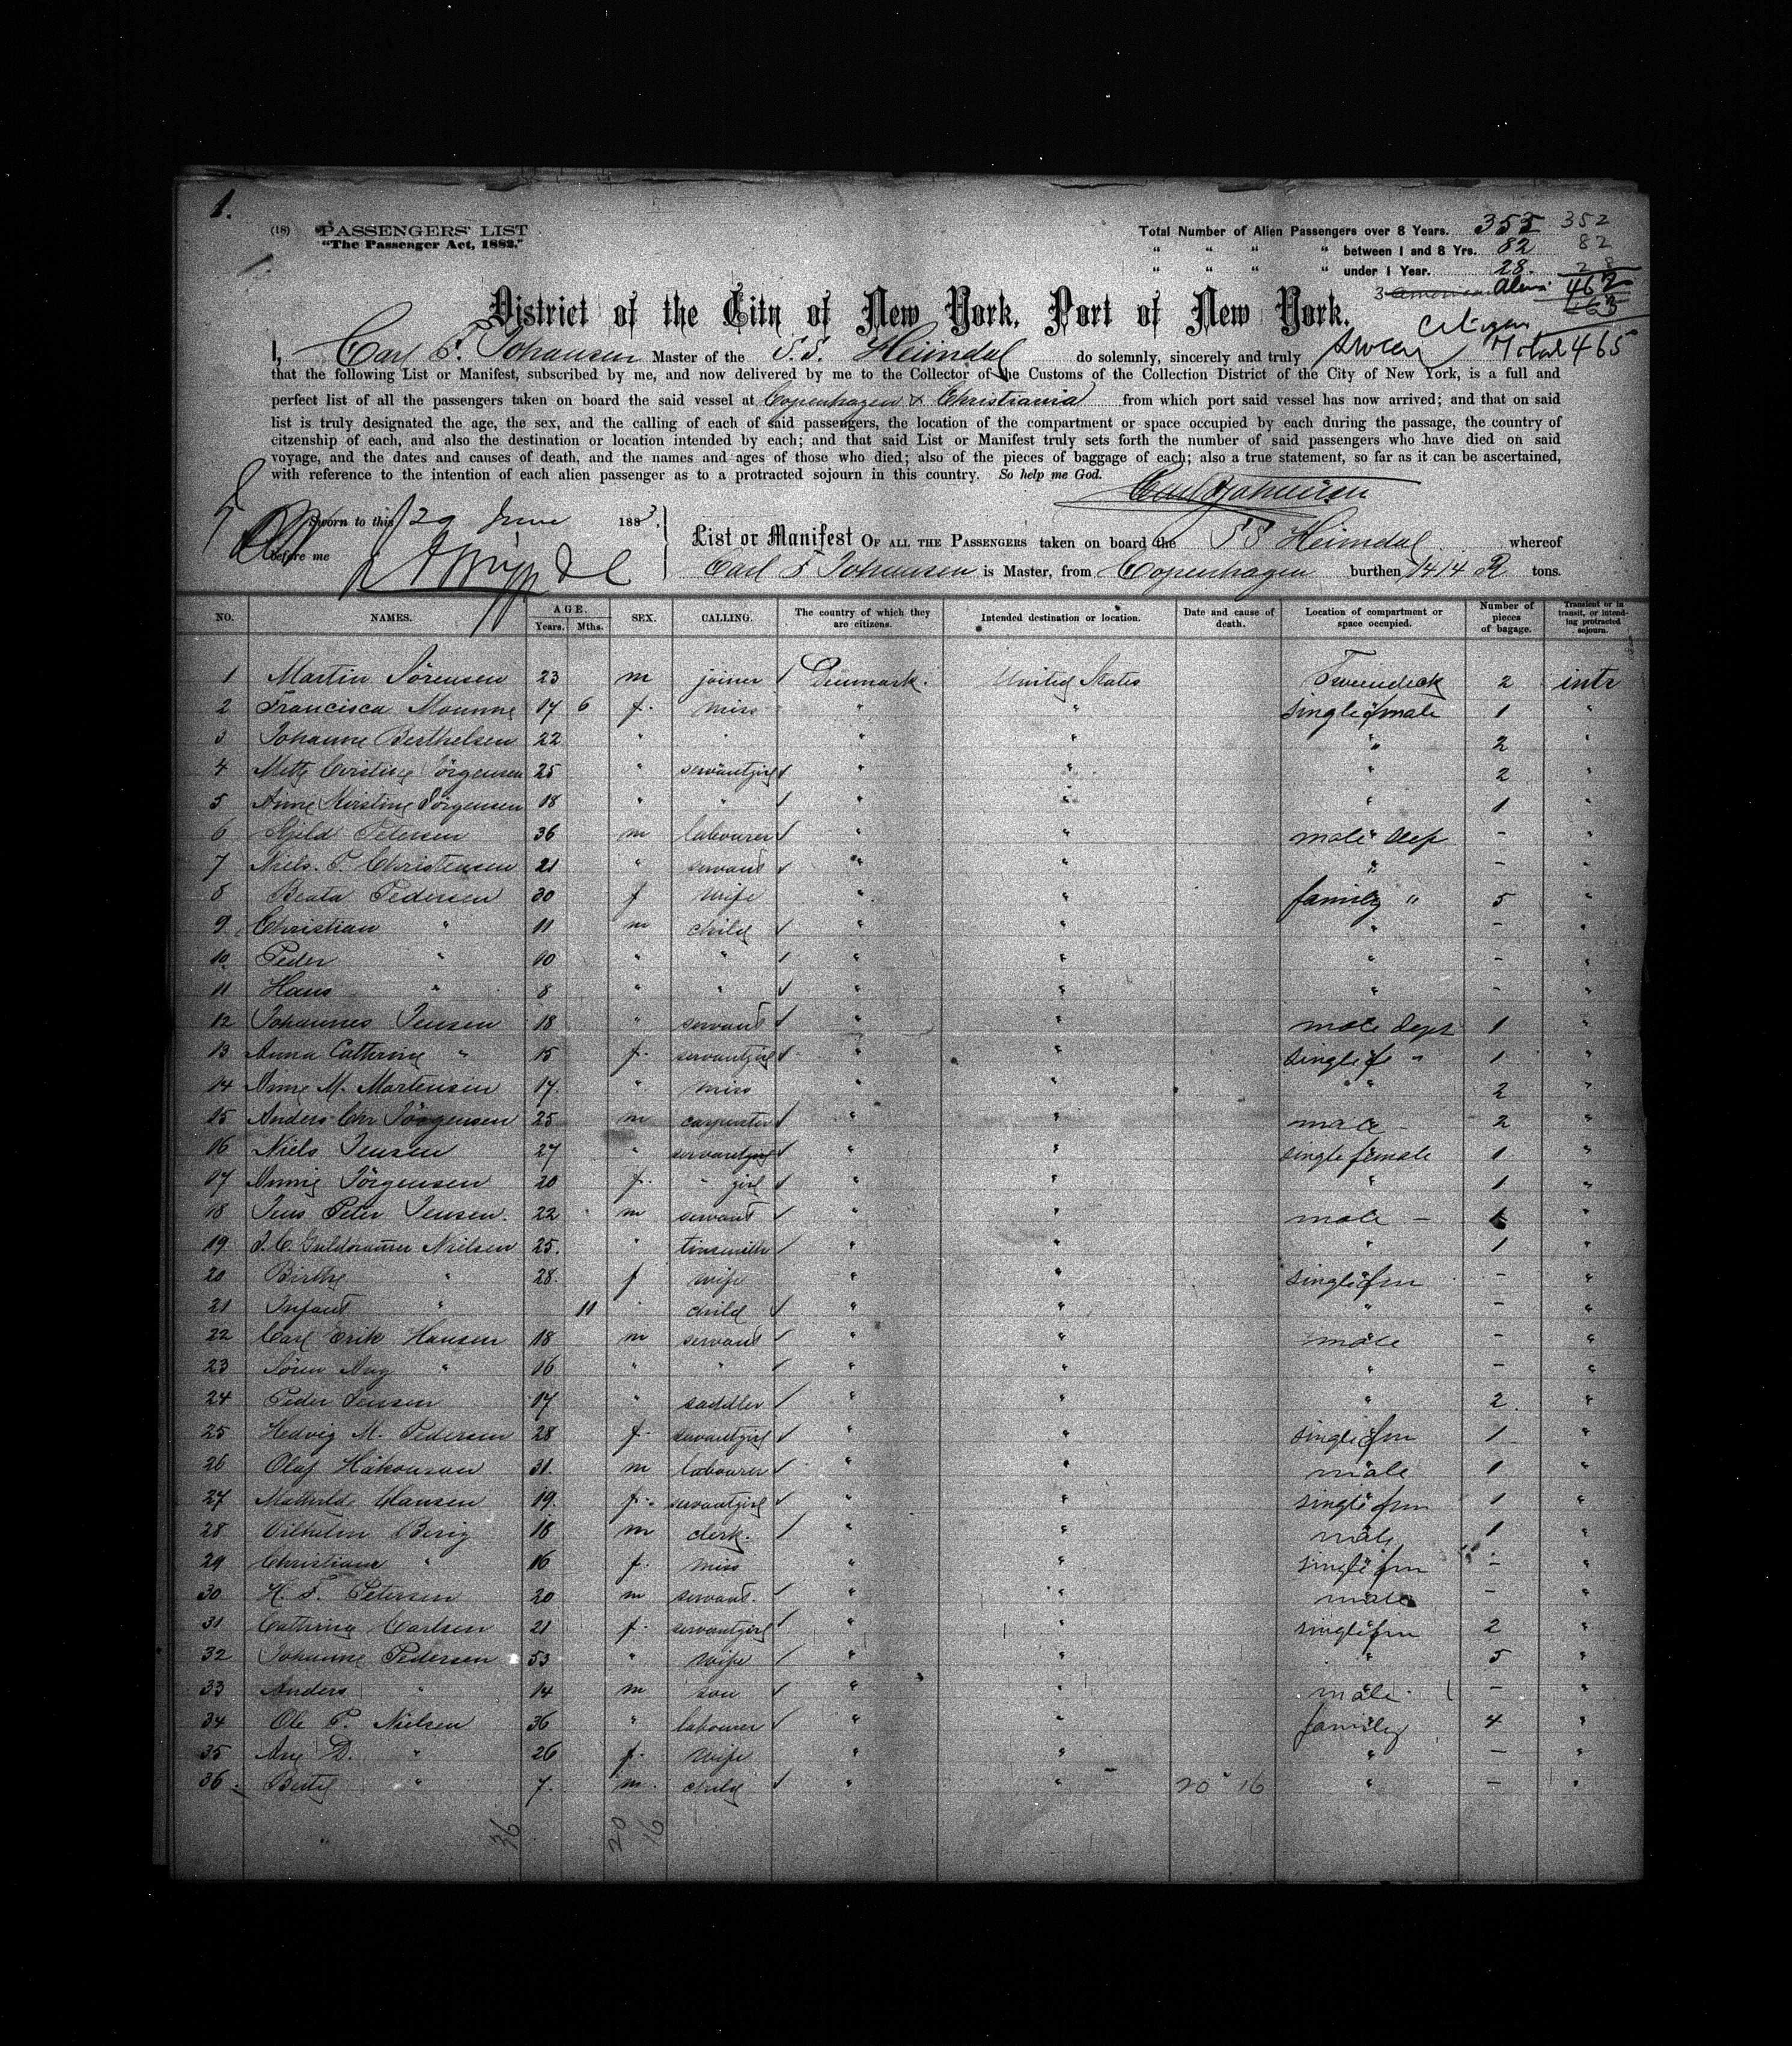 1.
(18) PASSENGERS' LIST
"The Passenger Act, 1882."
1.
Total Number of Alien Passengers over 8 Years. 353 352
" " " " between 1 and 8 Yrs. 82 82
" " " " under 1 Year. 28. 28
3 American Aliens 462
463
Citizen
Total 465
District of the City of New York, Port of New York.
I, Carl F. Johansen Master of the S.S. Heimdal do solemnly, sincerely and truly swear
that the following List or Manifest, subscribed by me, and now delivered by me to the Collector of the Customs of the Collection District of the City of New York, is a full and
perfect list of all the passengers taken on board the said vessel at Copenhagen & Christiania from which port said vessel has now arrived; and that on said
list is truly designated the age, the sex, and the calling of each of said passengers, the location of the compartment or space occupied by each during the passage, the country of
citzenship of each, and also the destination or location intended by each; and that said List or Manifest truly sets forth the number of said passengers who have died on said
voyage, and the dates and causes of death, and the names and ages of those who died; also of the pieces of baggage of each; also a true statement, so far as it can be ascertained,
with reference to the intention of each alien passenger as to a protracted sojourn in this country. So help me God.
Carl F Johansen
Sworn to this 29 June 1883,
before me
List or Manifest OF ALL THE PASSENGERS taken on board the SS Heimdal whereof
Carl F Johansen is Master, from Copenhagen burthen 1414 R tons.
NO. NAMES. AGE. Years. Mths. SEX. CALLING. The country of which they are citizens. Intended destination or location. Date and cause of death. Location of compartment or space occupied. Number of pieces of bagage. Transient or in transit, or intending protracted sojourn.
1 Martin Sörensen 23 m joiner Denmark. United States Tweendeck 2 intr
2 Francisca 17 6 f. miss " " single female 1 "
3 Johanne Berthelsen 22 " " " " " 2 "
4 Mette Cristine Jörgensen 25 " servantgirl " " " 2 "
5 Anne Kirstine Jörgensen 18 " " " " " 1 "
6 Kjeld Petersen 36 m labourer " " male dep - "
7 Niels. P. Christensen 21 " servant " " " - "
8 Beata Pedersen 30 f wife " " family " 5 "
9 Christian " 11 m child " " " - "
10 Peder " 10 " " " " " - "
11 Hans " 8 " " " " " - "
12 Johannes Jensen 18 " servant " " male dept 1 "
13 Anna Cathrine " 15 f. servantgirl " " single f " 1 "
14 Anne M. Mortensen 17. " miss " " " " 2 "
15 Anders Chr Jörgensen 25 m carpenter " " male - 2 "
16 Niels Jensen 27 " servantgirl " " single female 1 "
17 Annie Jörgensen 20 f. " girl " " " 1 "
18 Jens Peter Jensen. 22 m servant " " male - 1 "
19 Nielsen 25. " tinsmith " " " 1 "
20 Birthe " 28. f wife " " single fm - "
21 Infant " 11 " child " " " - "
22 Carl Erik Hansen 18 m servant " " male - "
23 Sören Aug " 16 " " " " " - "
24 Peder Jensen 17 " saddler " " " 2. "
25 Hedvig M. Pedersen 28 f. servantgirl " " single fm 1 "
26 Olaf Håkonson 31. m labourer " " male 1 "
27 Mathilde Hansen 19. f. servantgirl " " single fm 1 "
28 Vilhelm Berig 18 m clerk. " " male 1 "
29 Christiane " 16 f. miss " " single fm - "
30 H. F. Petersen 20 m servant. " " male - "
31 Cathrine Carlsen 21 f. servantgirl " " single fm 2 "
32 Johanne Pedersen 53 " wife " " " 5 "
33 Anders " 14 m son " " male - "
34 Ole P. Nielsen 36 " labourer " " family 4 "
35 Ane D. " 26 f. wife " " " - "
36. " 7. m. child " " 20 16 " - "
36 20 16